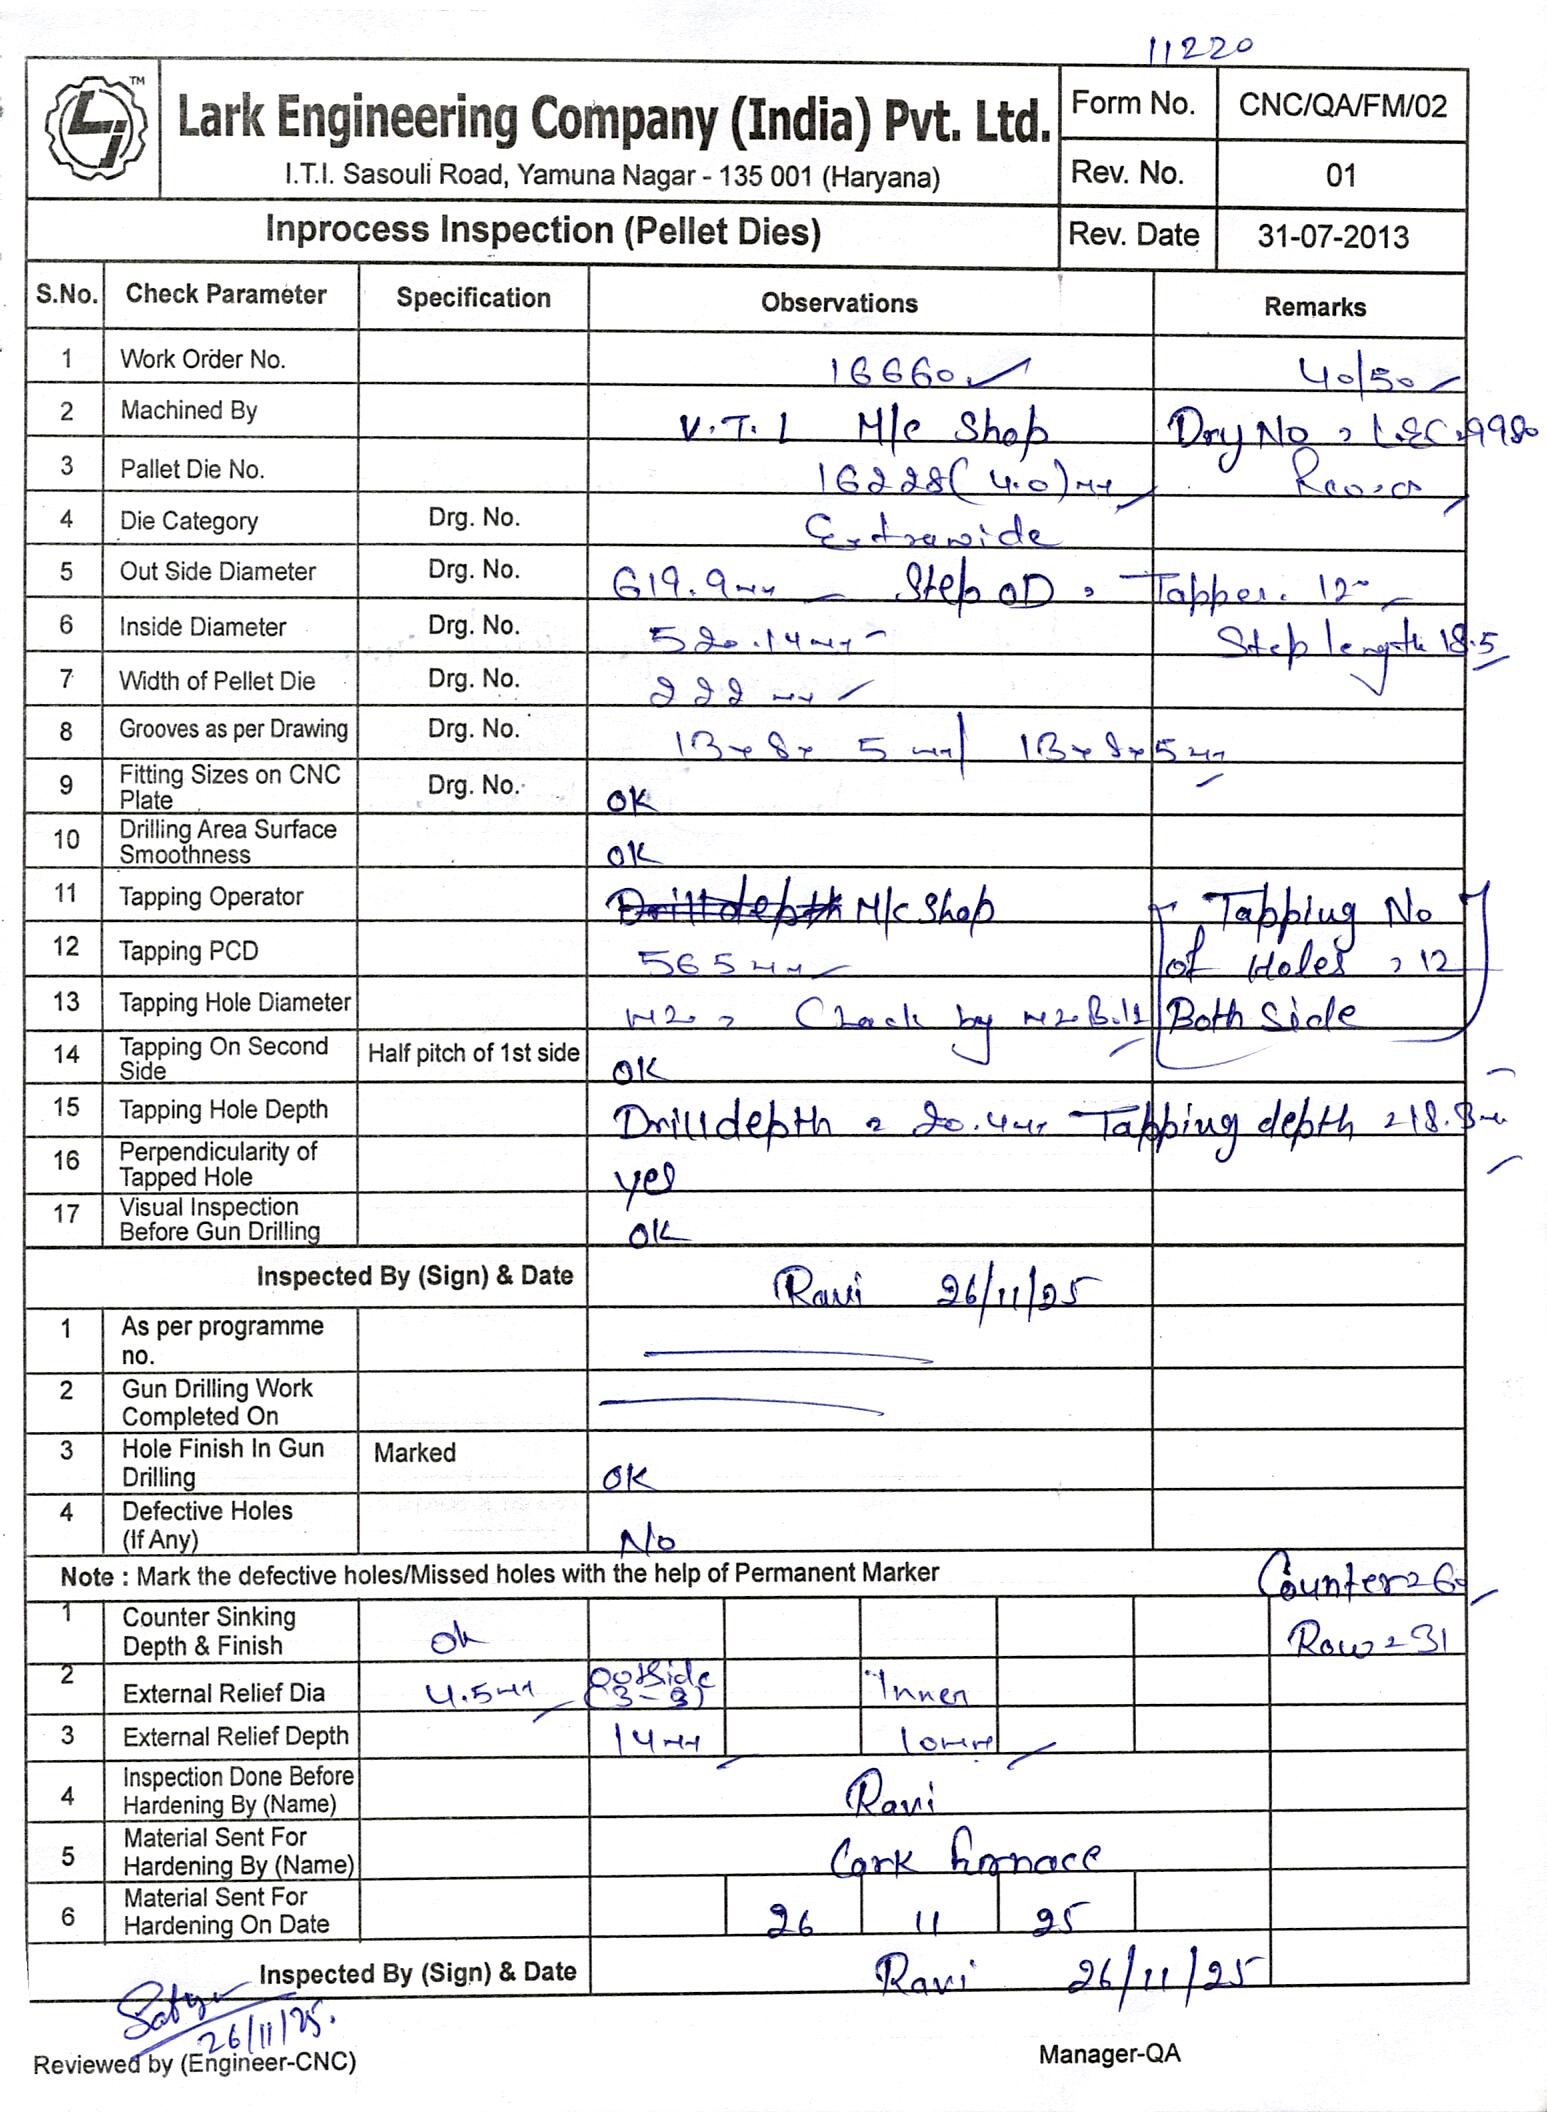 11220
Li TM
Lark Engineering Company (India) Pvt. Ltd.
I.T.I. Sasouli Road, Yamuna Nagar - 135 001 (Haryana)
Form No. CNC/QA/FM/02
Rev. No. 01
Inprocess Inspection (Pellet Dies)
Rev. Date 31-07-2013
S.No. Check Parameter Specification Observations Remarks
1 Work Order No. 16660 40/50
2 Machined By V.T.L M/c Shop Drg No = LEC-9980
3 Pallet Die No. 16228(4.0)mm
4 Die Category Drg. No. Extrawide
5 Out Side Diameter Drg. No. 619.9mm Step OD = Tapper. 12
6 Inside Diameter Drg. No. 520.14mm Step length 18.5
7 Width of Pellet Die Drg. No. 222 mm
8 Grooves as per Drawing Drg. No. 13x8x 5 mm/ 13x8x5mm
9 Fitting Sizes on CNC Plate Drg. No. OK
10 Drilling Area Surface Smoothness OK
11 Tapping Operator M/c Shop Tapping No
12 Tapping PCD 565mm of Holes = 12
13 Tapping Hole Diameter M20 = Check by M20 Bolt Both Side
14 Tapping On Second Side Half pitch of 1st side OK
15 Tapping Hole Depth Drill depth = 20.4mm Tapping depth =18.3mm
16 Perpendicularity of Tapped Hole yes
17 Visual Inspection Before Gun Drilling OK
Inspected By (Sign) & Date Ravi 26/11/25
1 As per programme no.
2 Gun Drilling Work Completed On
3 Hole Finish In Gun Drilling Marked OK
4 Defective Holes (If Any) No
Note : Mark the defective holes/Missed holes with the help of Permanent Marker Counter=60
1 Counter Sinking Depth & Finish Ok Row=31
2 External Relief Dia 4.5mm Outside (3-3) Inner
3 External Relief Depth 14mm 10mm
4 Inspection Done Before Hardening By (Name) Ravi
5 Material Sent For Hardening By (Name) Lark furnace
6 Material Sent For Hardening On Date 26 11 25
Inspected By (Sign) & Date Ravi 26/11/25
26/11/25.
Reviewed by (Engineer-CNC)
Manager-QA